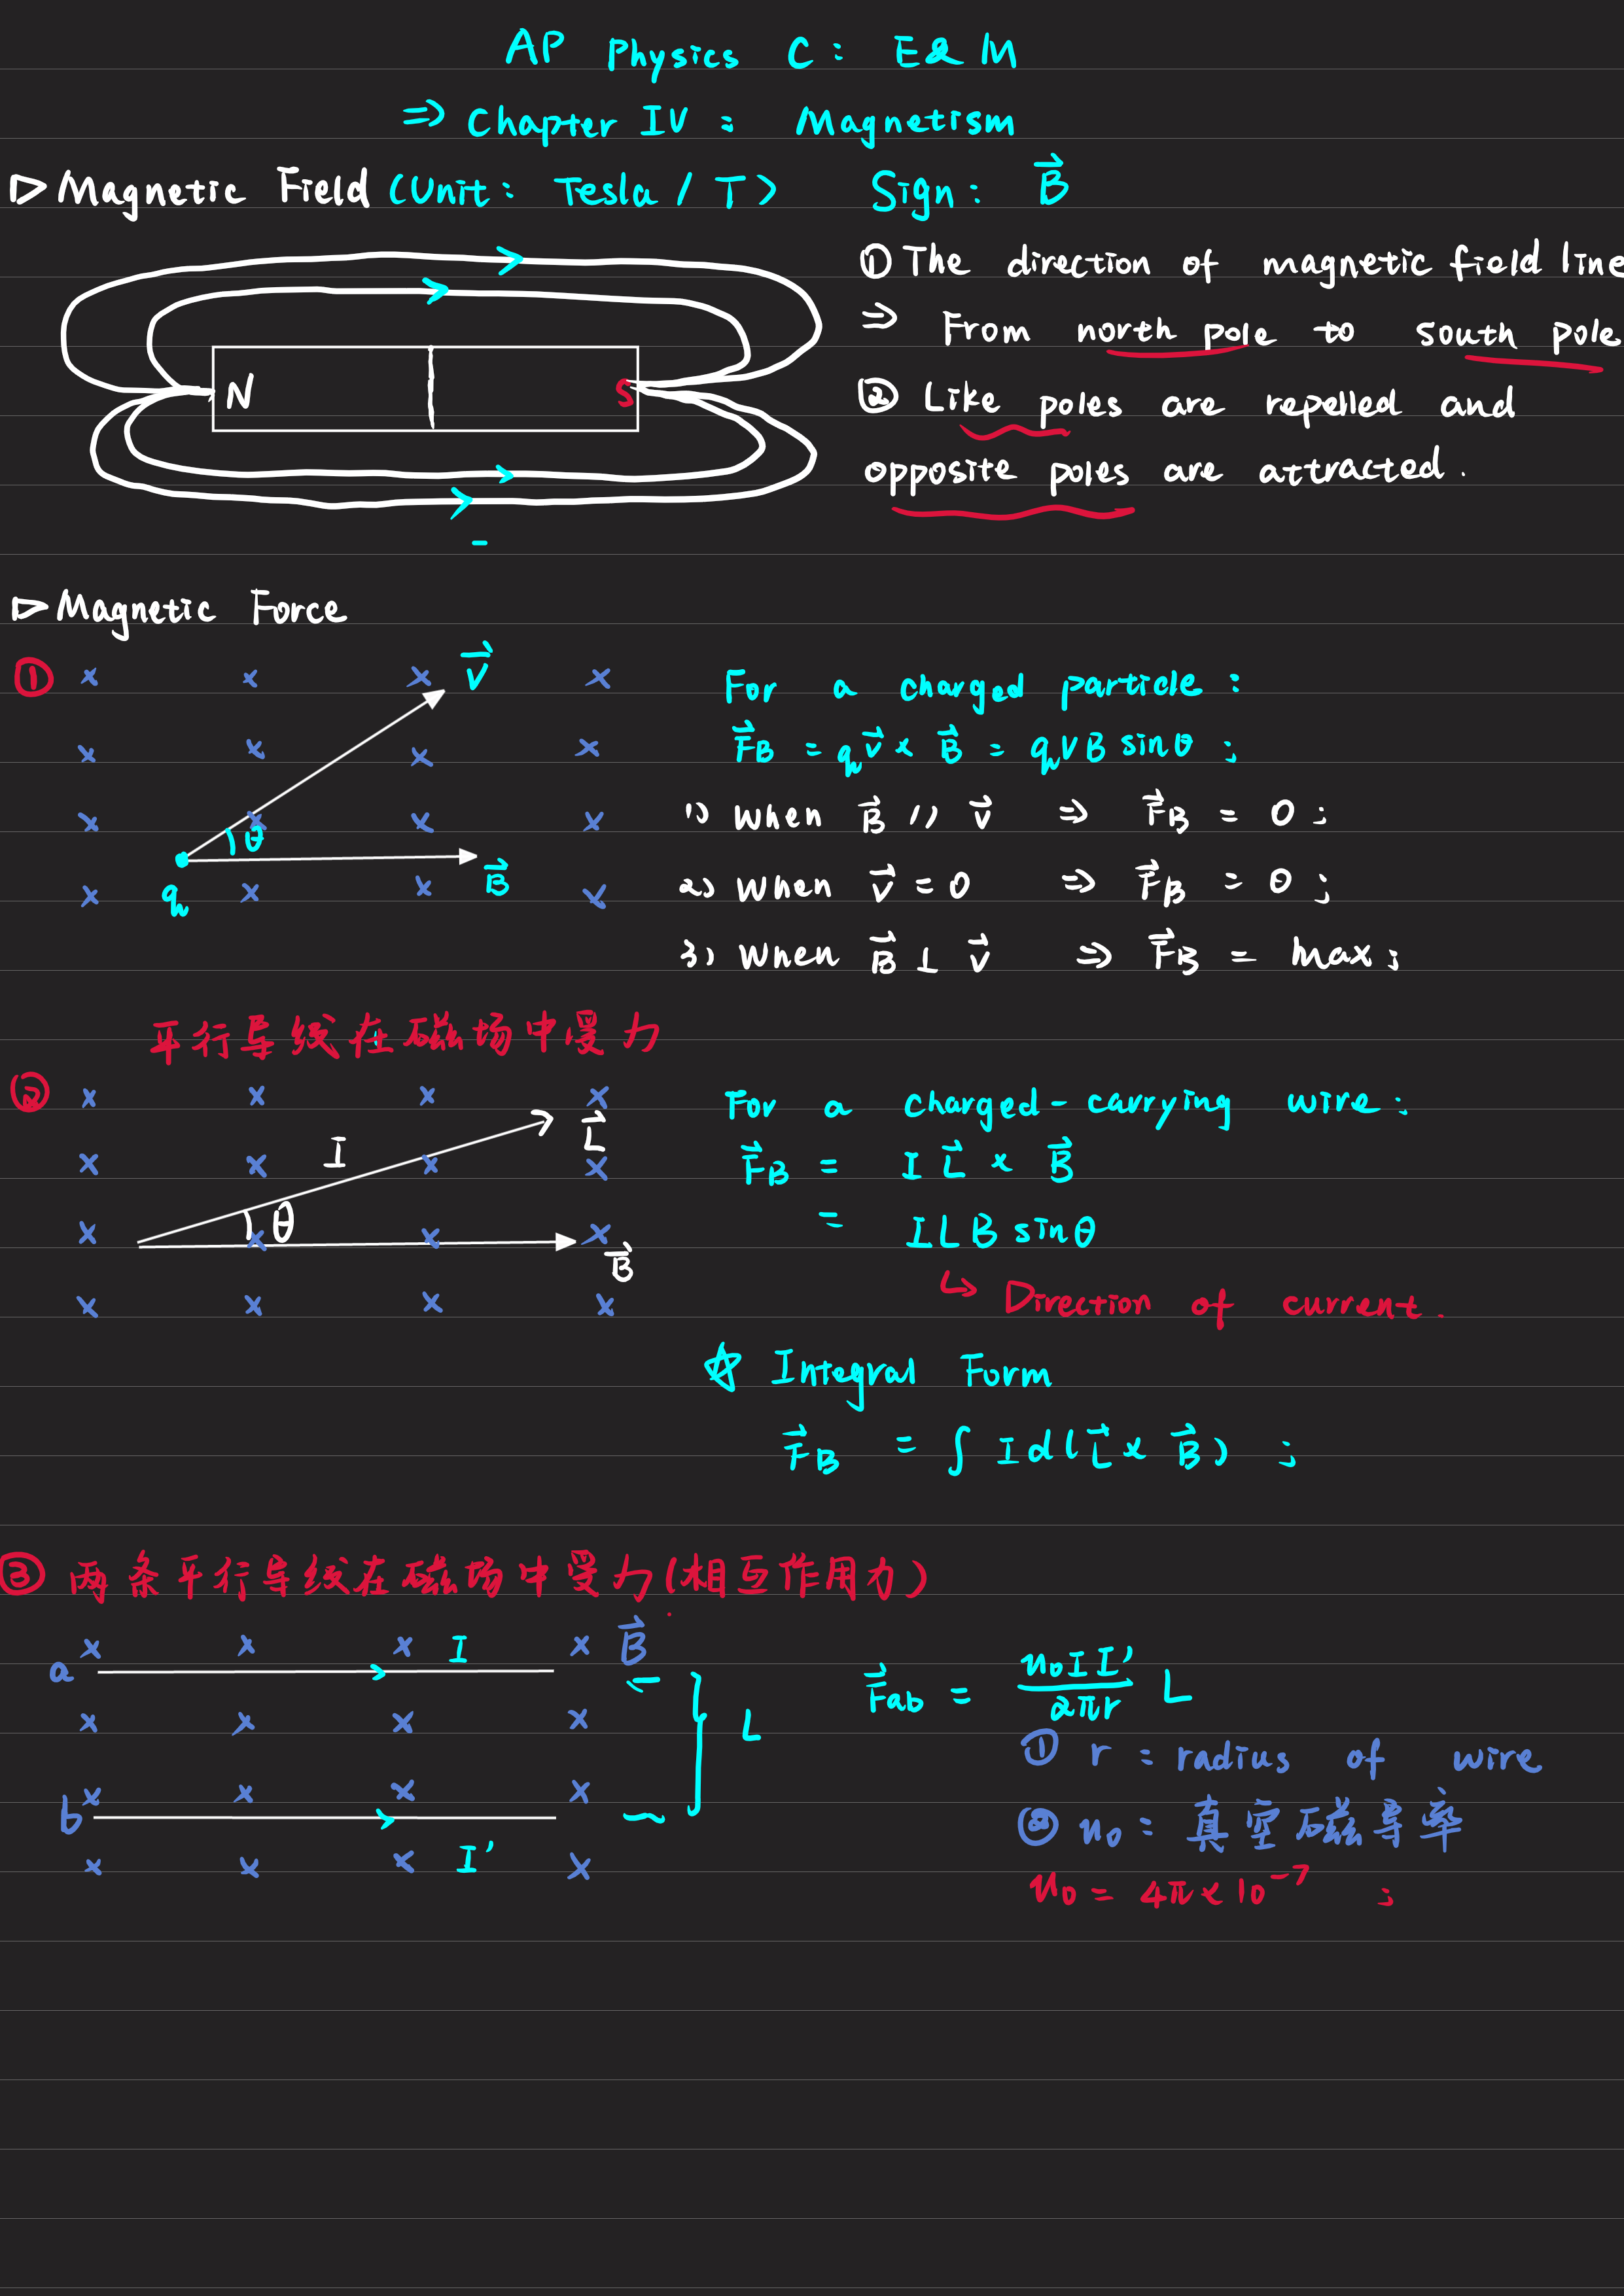 AP Physics C: E&M
⇒ Chapter IV: Magnetism
▷Magnetic Field (Unit: Tesla / T) Sign: B⃗
① The direction of magnetic field line
⇒ From north pole to south pole
N S
② Like poles are repelled and
opposite poles are attracted.
▷Magnetic Force
①
v⃗
θ
q
B⃗
For a charged particle:
F⃗B = qv⃗ × B⃗ = qvB sinθ;
1) When B⃗ // v⃗ ⇒ F⃗B = 0;
2) When v⃗ = 0 ⇒ F⃗B = 0;
3) When B⃗ ⊥ v⃗ ⇒ F⃗B = max;
平行导线在磁场中受力
②
I L⃗
θ
B⃗
For a charged-carrying wire:
F⃗B = I L⃗ × B⃗
= ILB sinθ
↳ Direction of current.
☆ Integral Form
F⃗B = ∫ I d(L⃗ × B⃗);
③ 两条平行导线在磁场中受力(相互作用力)
a I B⃗
L
b I'
F⃗ab = u₀II'/2πr L
① r: radius of wire
② u₀: 真空磁导率
u₀ = 4π×10⁻⁷;